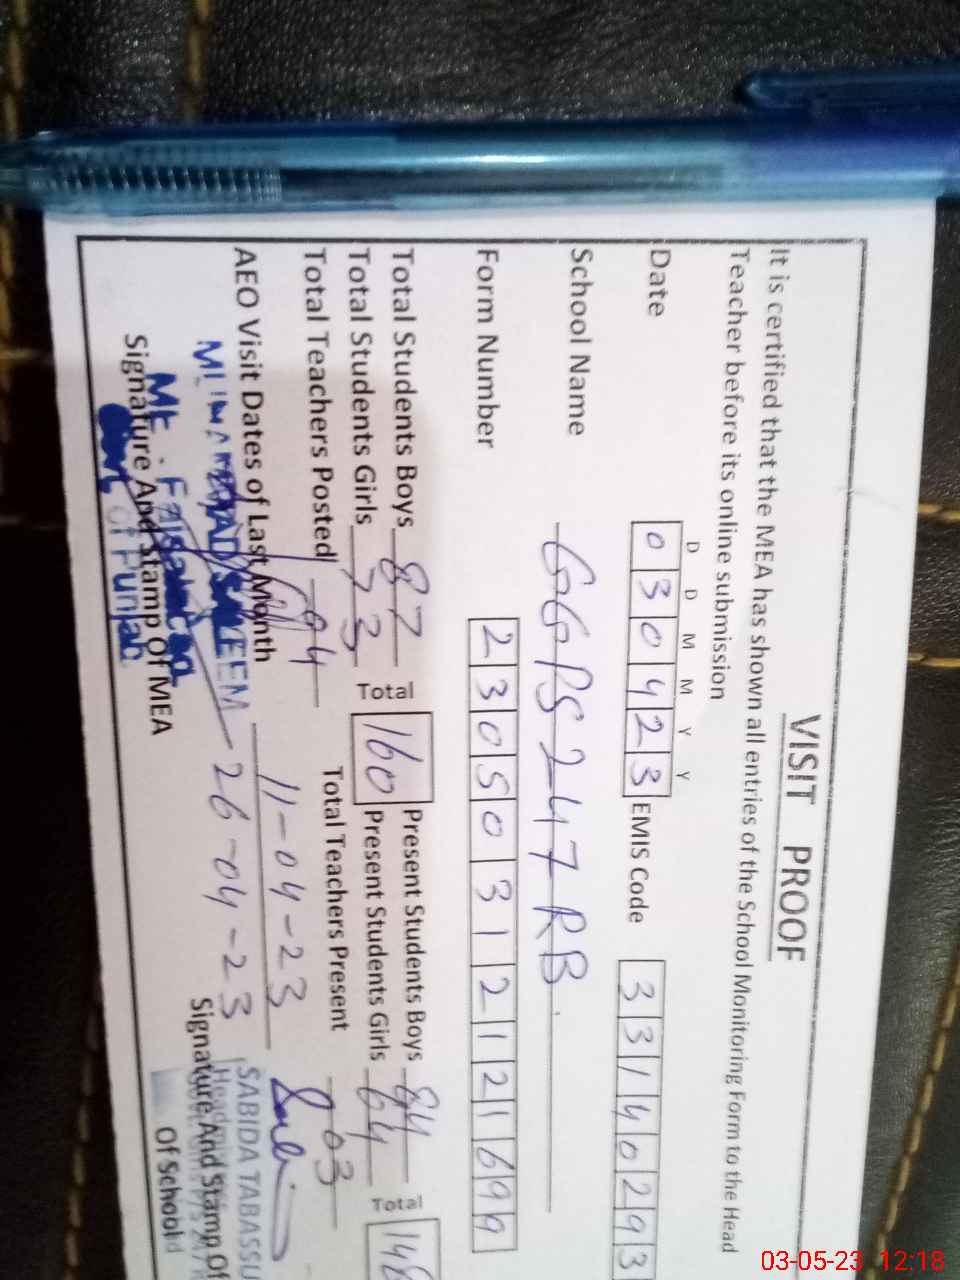 VISIT PROOF
It is certified that the MEA has shown all entries of the School Monitoring Form to the Head
Teacher before its online submission
D D M M Y Y
Date 030423 EMIS Code 33140293
School Name GGPS 247 RB
Form Number 23050312121699
Total Students Boys 87 Total 160 Present Students Boys 84 Total 148
Total Students Girls 73 Present Students Girls 64
Total Teachers Posted 04 Total Teachers Present 03
AEO Visit Dates of Last Month 11-04-23
26-04-23
SABIDA TABASSU
Signature And Stamp Of MEA
Signature And Stamp Of
Of School
Of Punjab
03-05-23 12:18